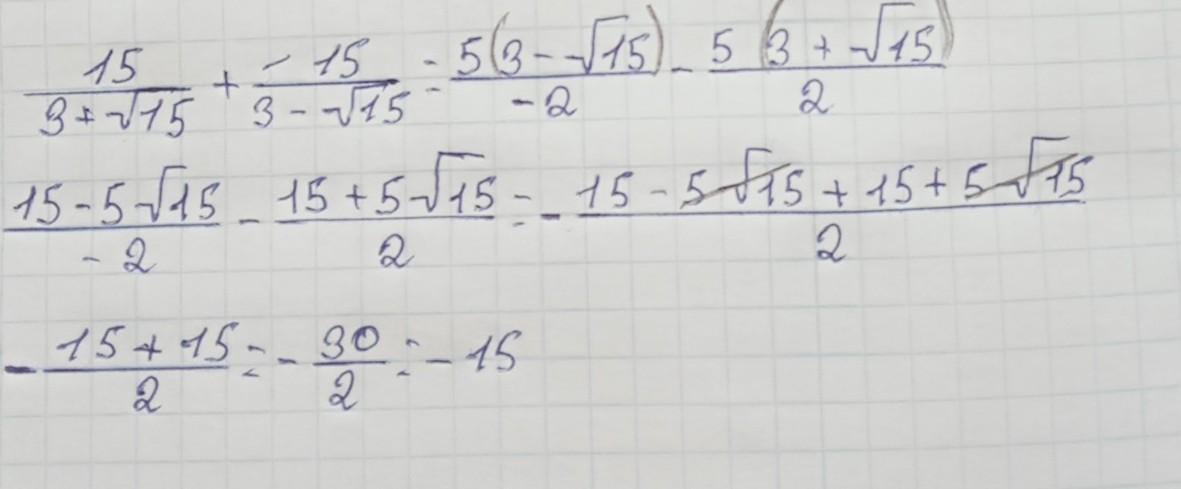 15/(3+√15) + (-15)/(3-√15) = 5(3-√15)/(-2) - 5(3+√15)/2
(15-5√15)/(-2) - (15+5√15)/2 = - (15-5√15+15+5√15)/2
- (15+15)/2 = - 30/2 = - 15